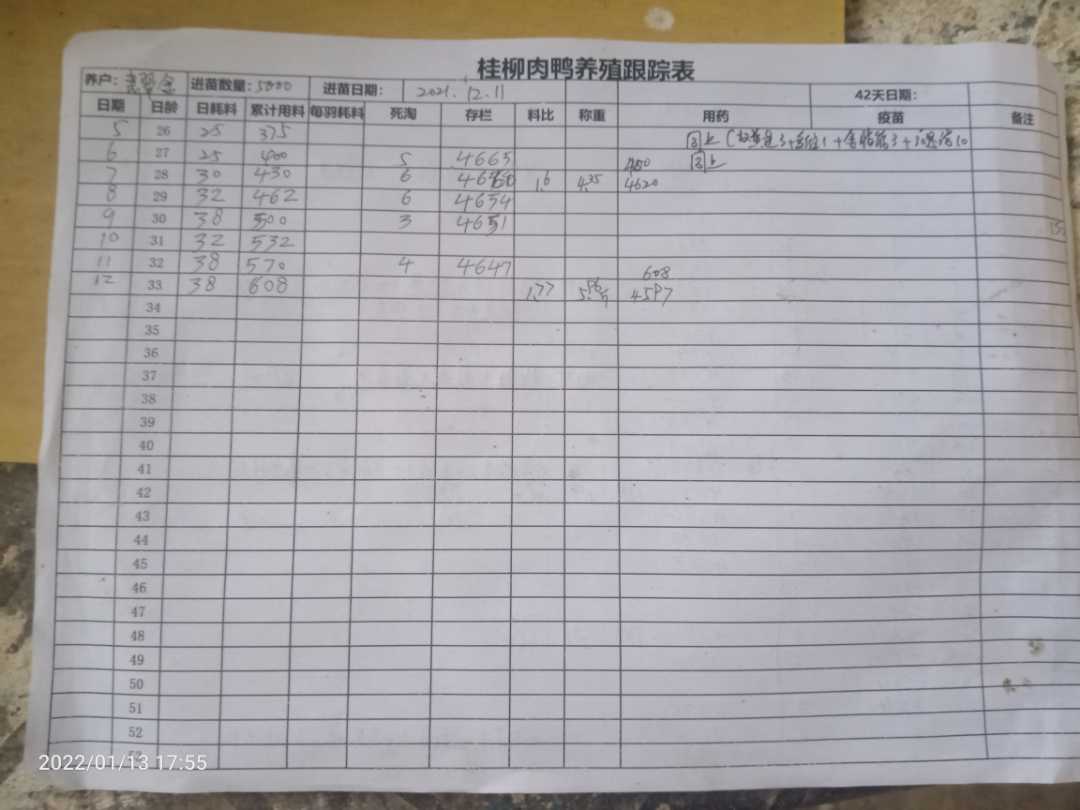 桂柳肉鸭养殖跟踪表
养户: 进苗数量: 5000 进苗日期: 2021.12.11 42天日期:
日期 日龄 日耗料 累计用料 每羽耗料 死淘 存栏 料比 称重 用药 疫苗 备注
5 26 25 375 同上
6 27 25 400 5 4665 450 同上
7 28 30 430 6 4660 1.6 4.35 4620
8 29 32 462 6 4654
9 30 38 500 3 4651
10 31 32 532
11 32 38 570 4 4647 608
12 33 38 608 1.77 4597
34
35
36
37
38
39
40
41
42
43
44
45
46
47
48
49
50
51
52
2022/01/13 17:55